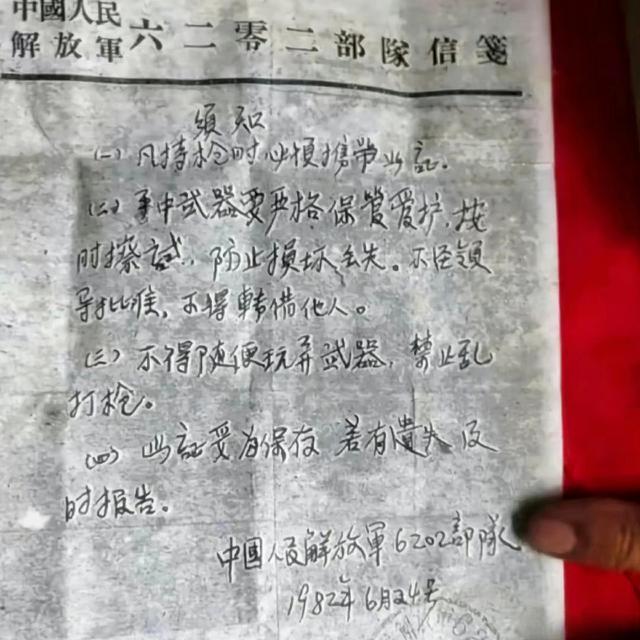 中國人民
解放軍六二零二部隊信箋
須知
(一) 凡持枪时必慎携带此証。
(二) 手中武器要严格保管爱护，按
时擦试，防止損坏丢失。不经领
导批准，不得轉借他人。
(三) 不得随便玩弄武器，禁止乱
打枪。
(四) 此証妥为保存 若有遺失 及
时报告。
中國人民解放軍6202部隊
1982年6月24号